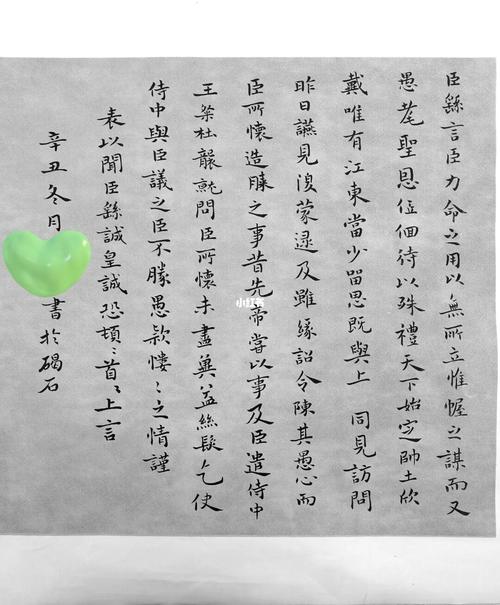 臣繇言臣力命之用以無所立惟幄之謀而又
愚耄聖恩伍佪待以殊禮天下始定帥土欣
戴唯有江東當少留思既與上 同見訪問
昨日讌見復蒙逮及雖緣詔令陳其愚心而
臣所懷造膝之事昔先帝嘗以事及臣遣侍中
王粲杜襲就問臣所懷未盡冀益絲髮乞使
侍中與臣議之臣不勝愚款悽〻之情謹
表以聞臣繇誠皇誠恐頓〻首〻上言
辛丑冬月 書於碣石
小红书